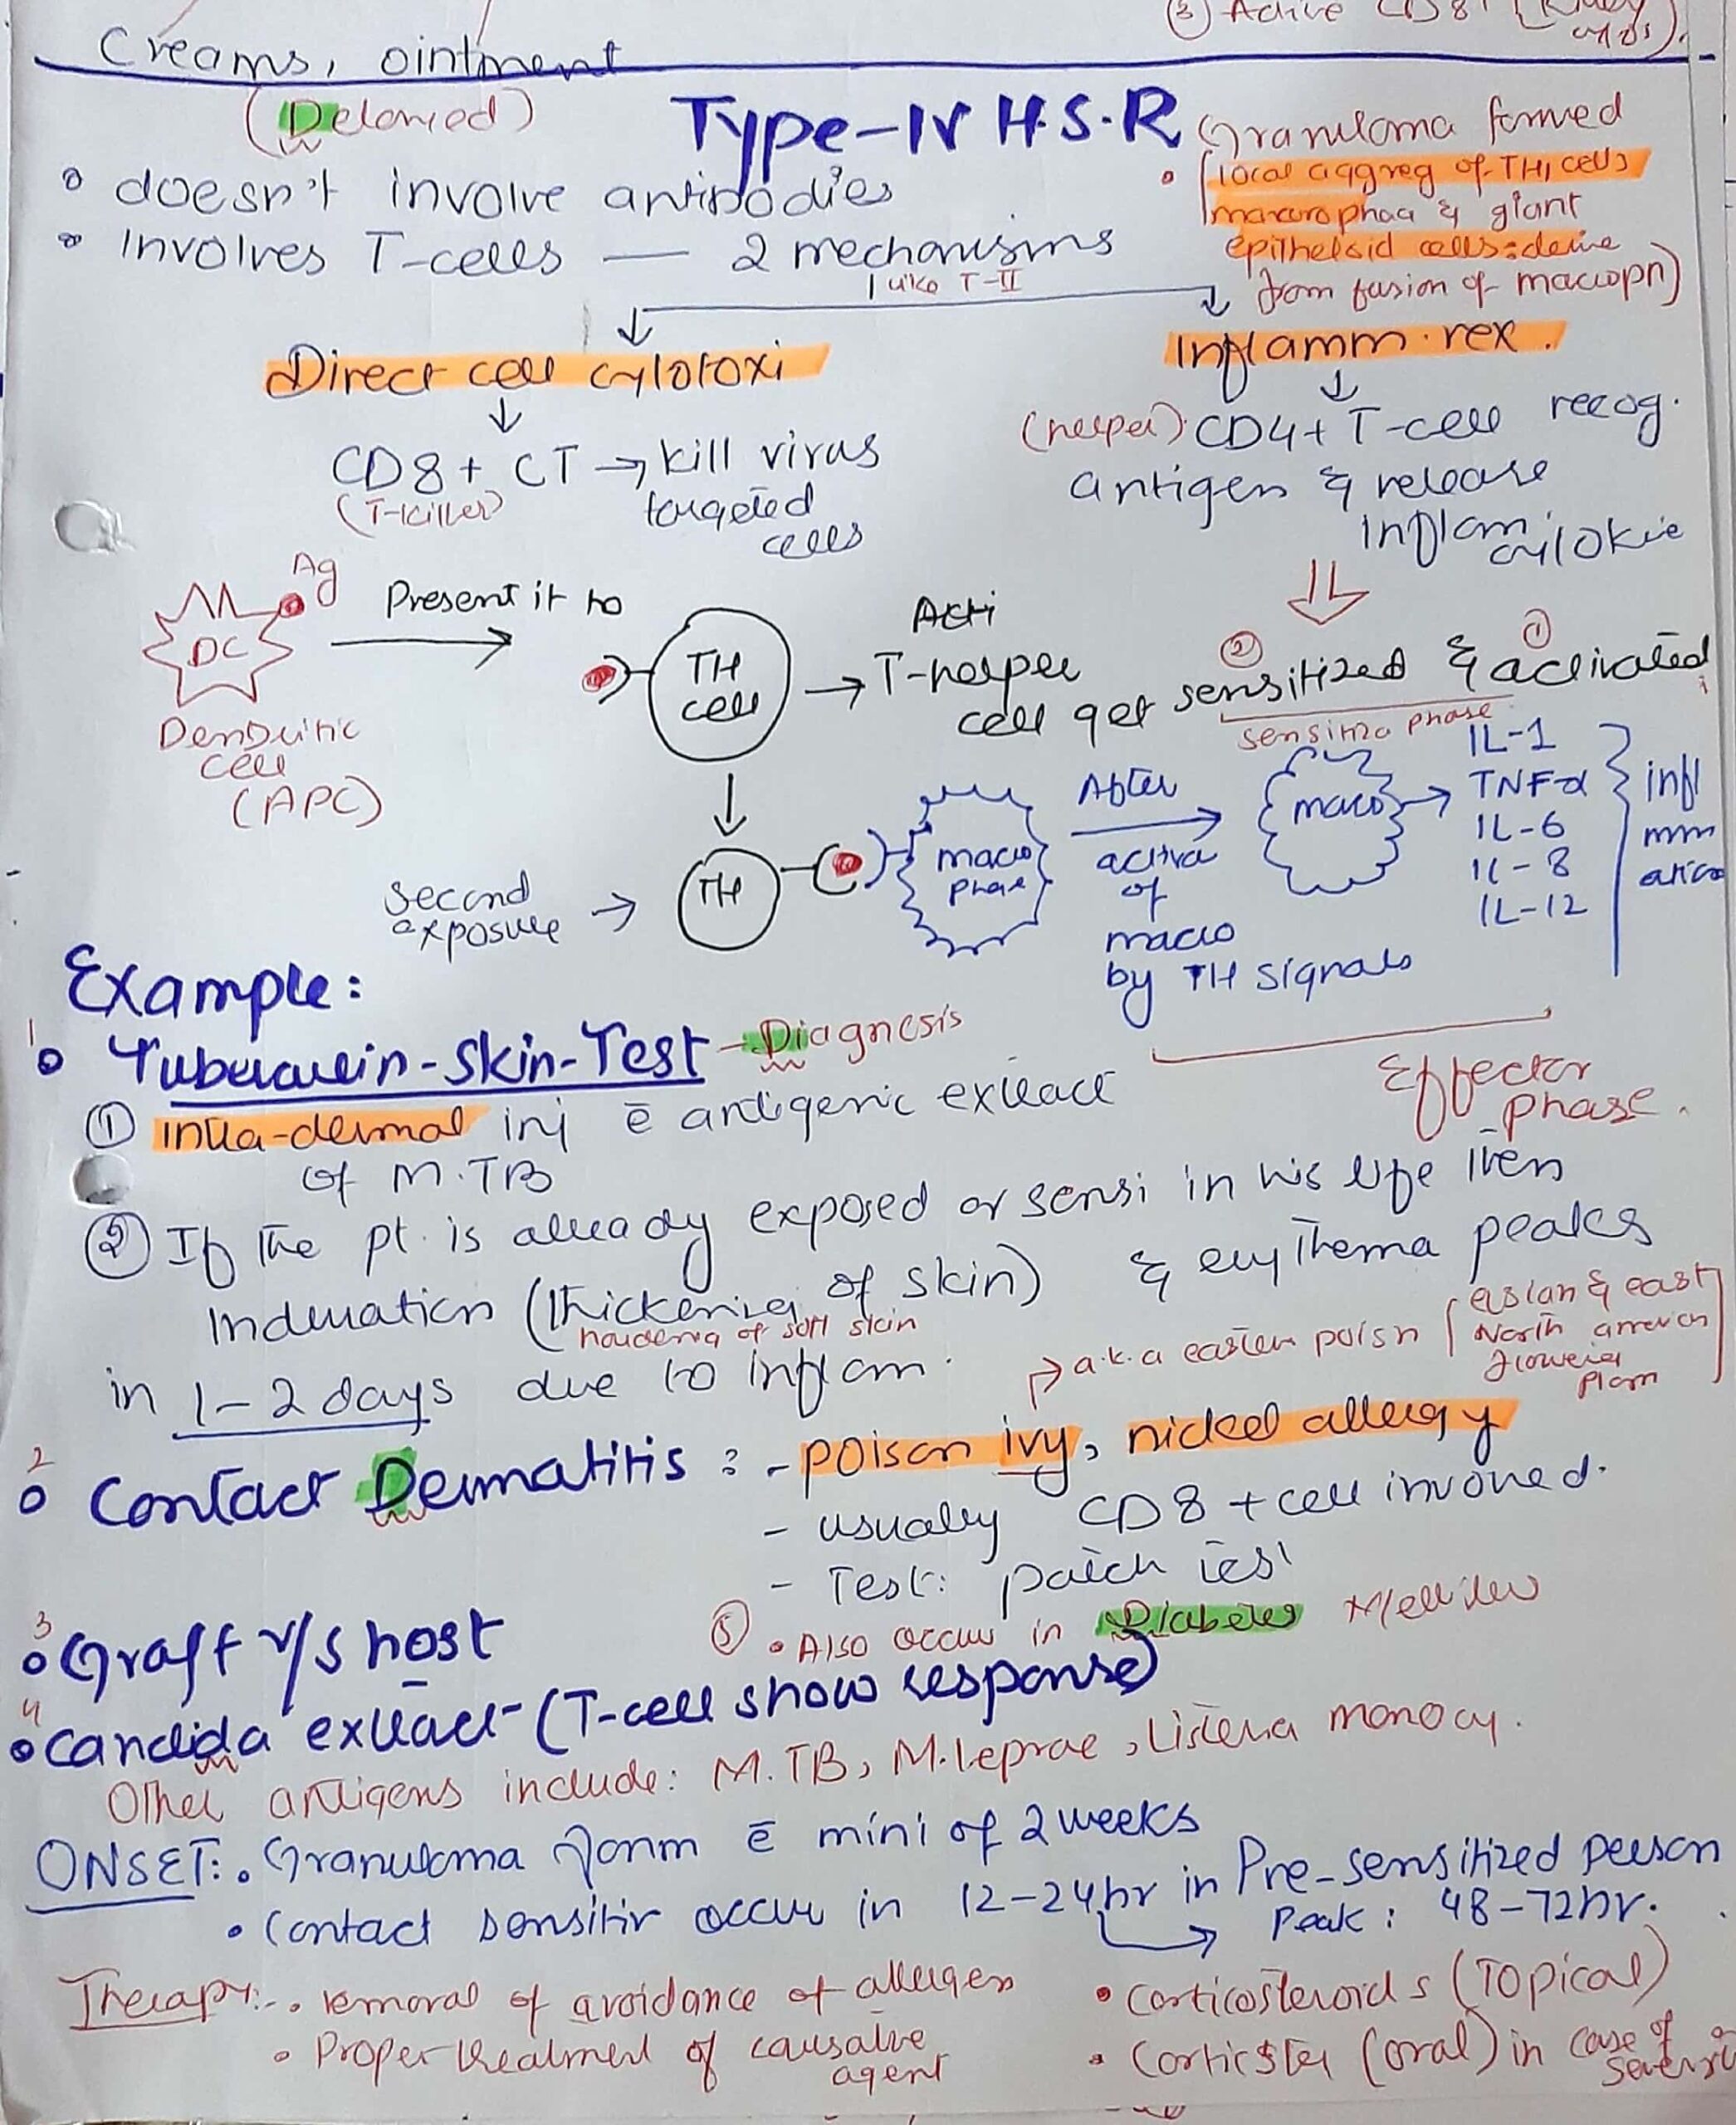 ③ Active CD8+
Creams, ointment
(Delayed)
Type-IV H.S.R
Granuloma formed
• doesn't involve antibodies
• (local aggreg of TH1 cells
macrophag & giant
epitheloid cells: derive
from fusion of macroph)
• Involves T-cells — 2 mechanisms
like T-II
Direct cell cytotoxi
Inflamm. rex.
CD8+ CT → kill virus
(T-killer)
targeted
cells
(helper) CD4+ T-cell recog.
antigen & release
inflam. cytokie
Ag
DC
Dendritic
cell
(APC)
Present it to
TH
cell
→ T-helper
cell get sensitized & activated
② ①
phase
Second
exposure →
TH
macro
phage
After
activa
of
macro
by TH signals
macro →
IL-1
TNF-α
IL-6
IL-8
IL-12
infl
mm
Effector
phase.
Example:
1
• Tuberculin-Skin-Test – Diagnosis
① intra-dermal inj c̄ antigenic extract
of M.TB
② If the pt. is already exposed or sensi in his life then
Induration (thickening of skin) & erythema peaks
hardening of soft skin
in 1-2 days due to inflam.
→ a.k.a eastern poisn [asian & east
North american
flowering
plant]
2
• Contact Dermatitis : - poison ivy, nickel allergy
- usually CD8+ cell involved.
- Test: patch test
3
• Graft v/s host
⑤ • Also occur in Diabetes Mellitus
4
• Candida extract - (T-cell show response)
Other antigens include: M.TB, M.leprae, Listeria monocy.
ONSET: • Granuloma form c̄ mini of 2 weeks
• Contact sensitiv occur in 12-24hr in Pre-sensitized person
→ Peak: 48-72hr.
Therapy: • removal of avoidance of allergen
• Proper treatment of causative
agent
• Corticosteroids (Topical)
• Corticster (oral) in case of